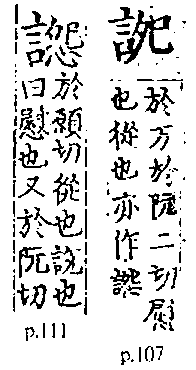 於万於阮二切慰
也從也亦作
p.107
於願切從也説也
曰慰也又於阮切
p.111